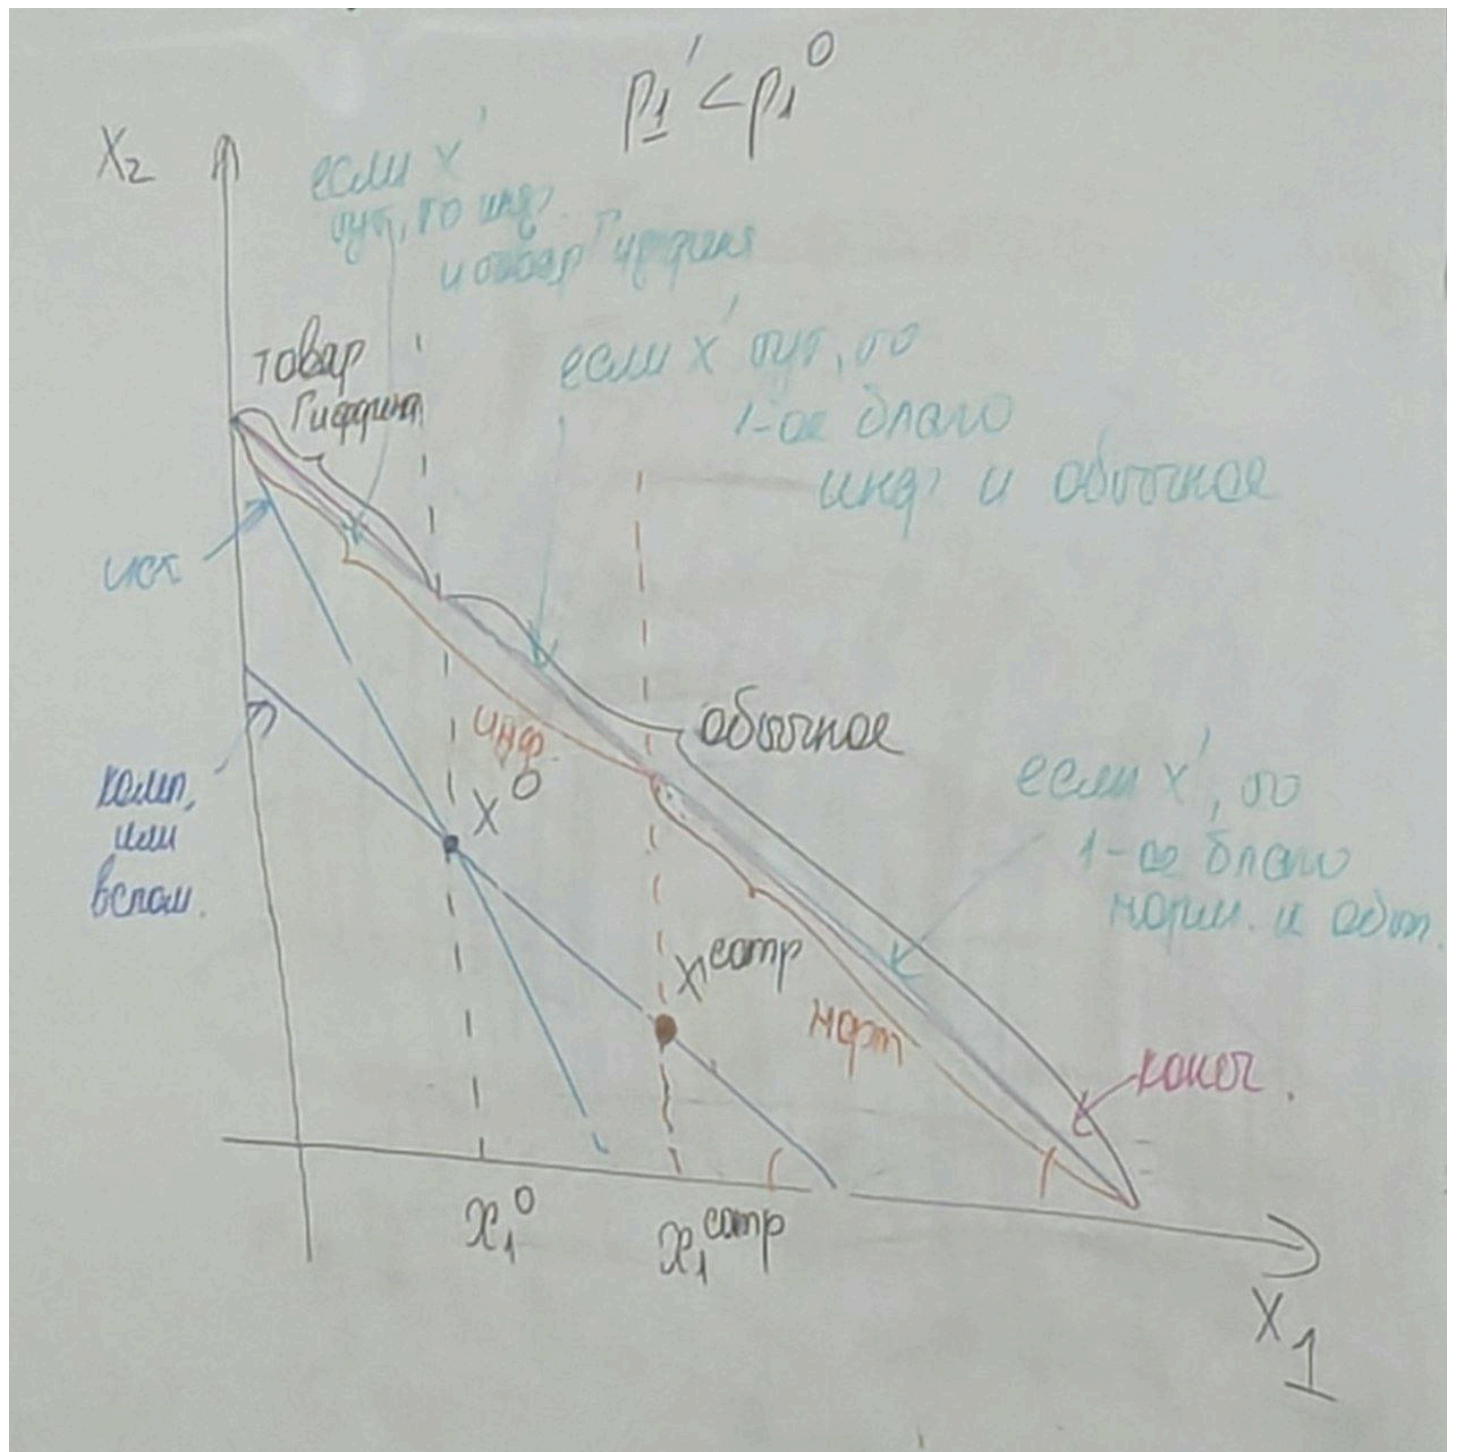 p₁' < p₁⁰
X₂
если x'
тут, то инф.
и товар Гиффина
товар
Гиффина
если x' тут, то
1-ое благо
инф. и обычное
исх
инф.
обычное
X⁰
комп.
или
вспом.
если x', то
1-ое благо
норм. и обыч.
X^comp
норм
конеч.
x₁⁰
x₁^comp
X₁